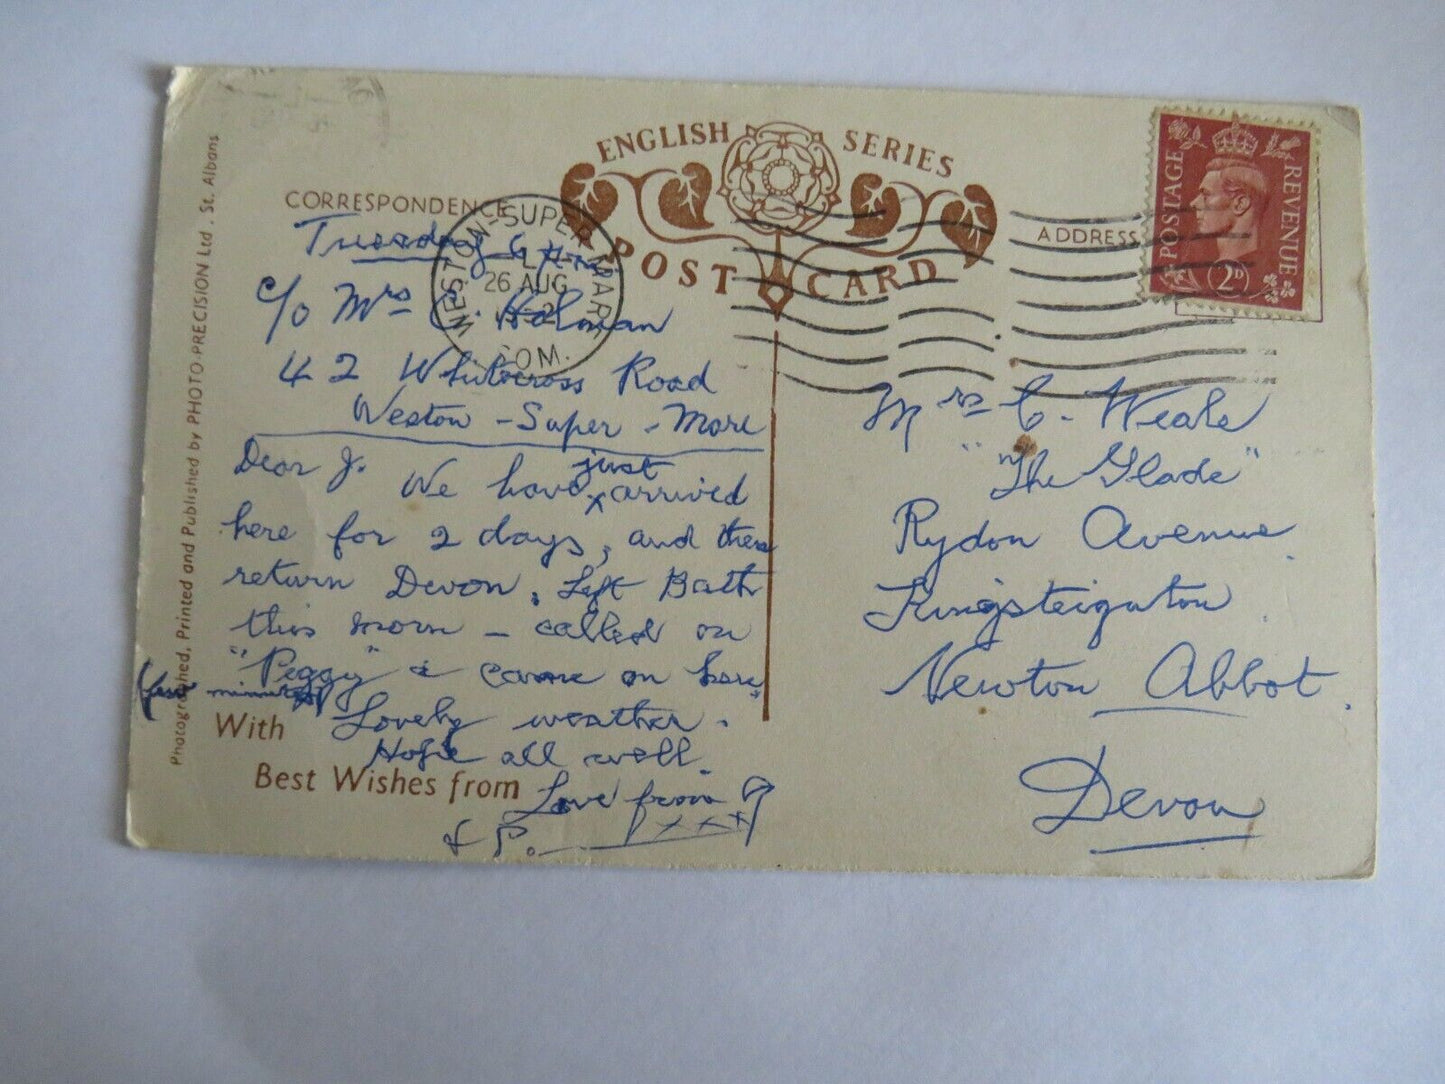 Photographed, Printed and Published by PHOTO-PRECISION Ltd., St. Albans
ENGLISH SERIES
POST CARD
CORRESPONDENCE
ADDRESS
POSTAGE REVENUE
2D
WESTON-SUPER-MARE
26 AUG
SOM.
Tuesday
c/o Mrs C. Holman
42 Whitecross Road
Weston-Super-Mare
Dear J. We have just arrived
here for 2 days, and then
return Devon. Left Bath
this morn – called on
"Peggy" & came on here.
(few minutes)
Lovely weather.
Hope all well.
With
Best Wishes from
Love from
& P. xxx
Mrs C. Weale
"The Glade"
Rydon Avenue
Kingsteignton
Newton Abbot.
Devon